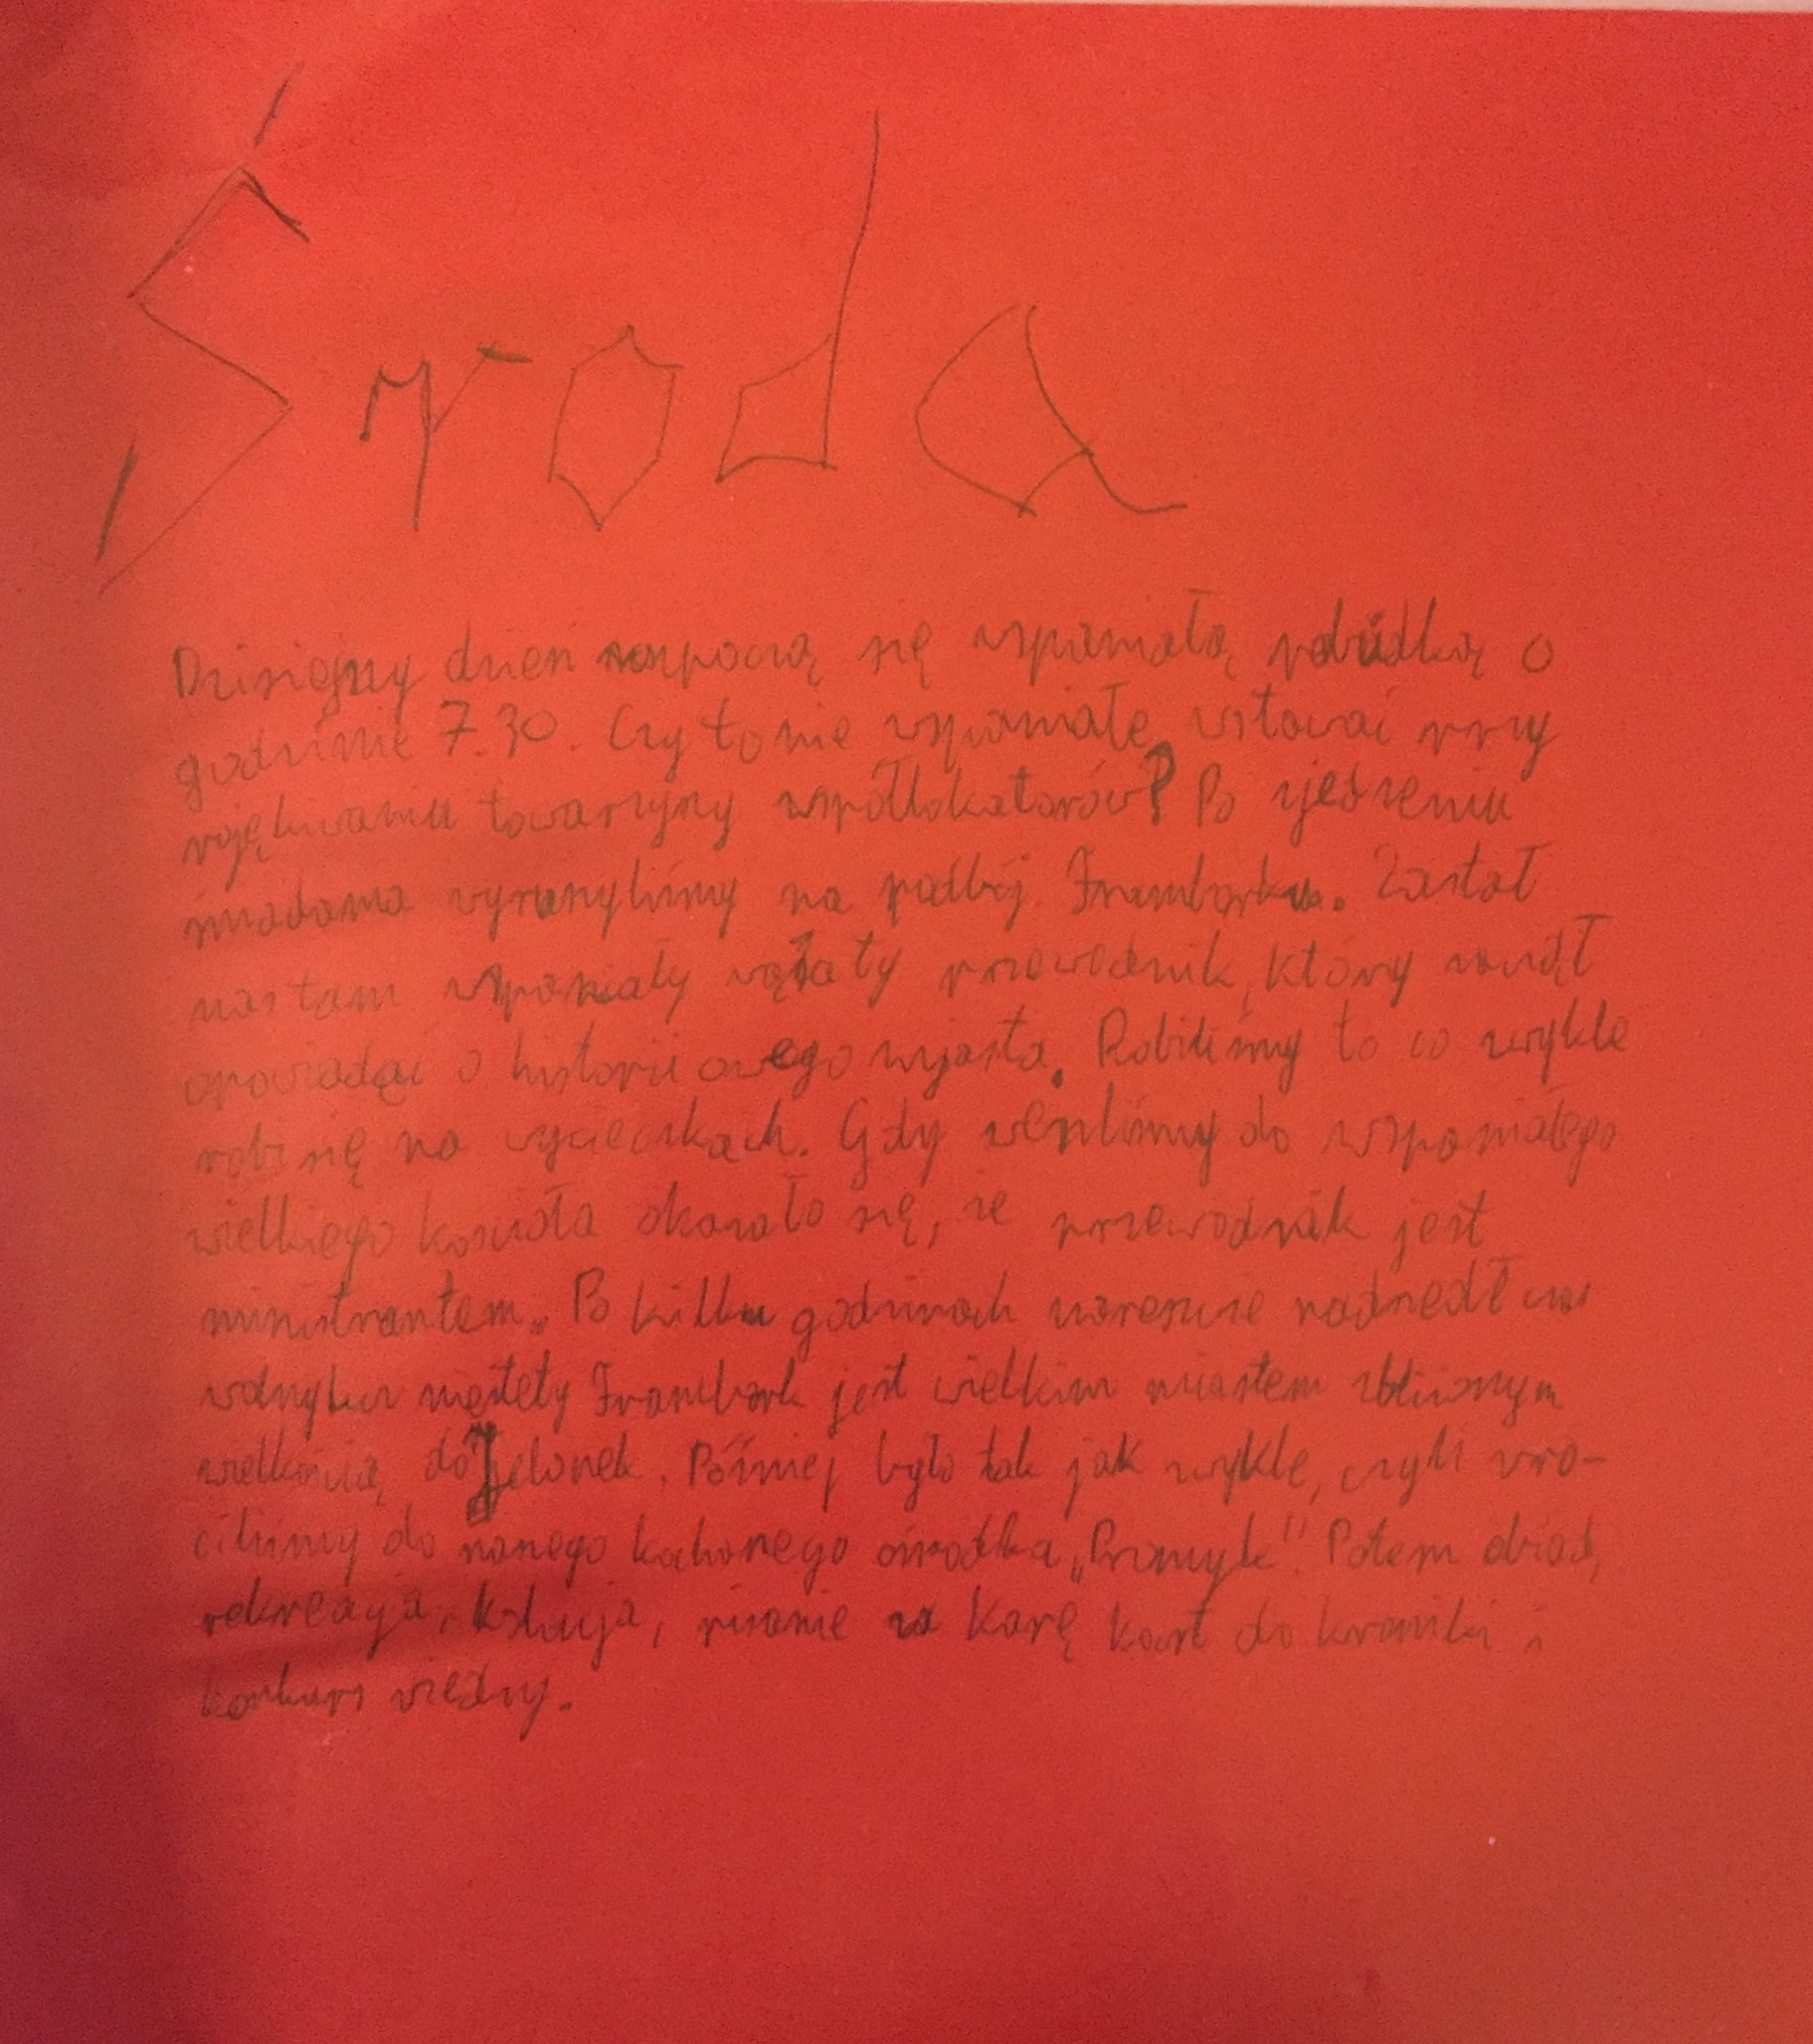 Środa
Dzisiejszy dzień rozpoczą się wspaniałą pobudką o
godzinie 7.30. Czy to nie wspaniałe, wstawać przy
pojękiwaniu towarzyszy współlokatorów? Po zjedzeniu
śniadania wyruszyliśmy na podbój Fromborku. Zastał
nas tam wspaniały wąsaty przewodnik, który zaczął
opowiadać o historii owego mjasta. Robiliśmy to co zwykle
robi się na wycieczkach. Gdy weszliśmy do wspaniałego
wielkiego kościoła okazało się, że przewodnik jest
ministrantem. Po kilku godzinach nareszcie nadszedł czas
wolny, lecz niestety Frombork jest wielkim miastem zbliżonym
wielkością do Jelonek. Później było tak jak zwykle, czyli wró-
ciliśmy do naszego kochanego ośrodka „Promyk”. Potem obiad,
rekreacja, kolacja, pisanie za karę kart do kroniki i
konkurs wiedzy.